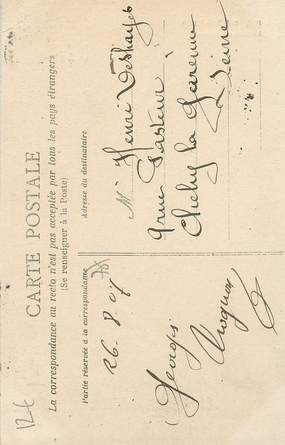 CARTE POSTALE
La correspondance au recto n'est pas acceptée par tous les pays étrangers
(Se renseigner à la Poste)
Partie réservée à la correspondance
26.8.07
Georges
Adresse du destinataire
M Henri Deshayes
9 rue Pasteur
Clichy la Garenne
Seine